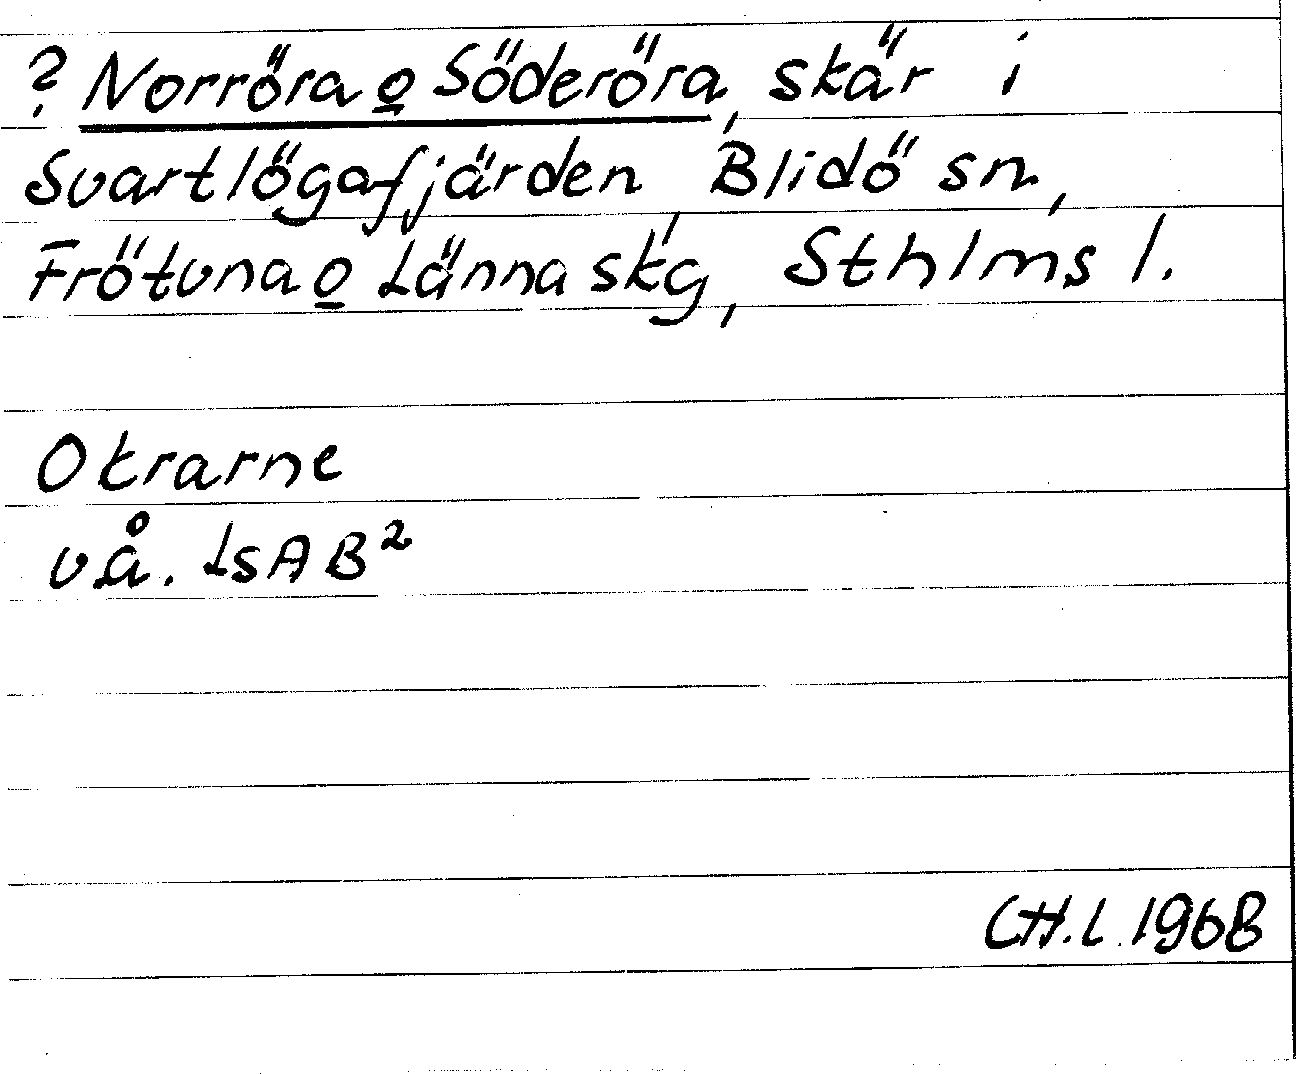 ? Norröra o Söderöra, skär i
Svartlögafjärden, Blidö sn,
Frötuna o Länna skg, Sthlms l.
Otrarne
vå. LSAB²
CH.L. 1968